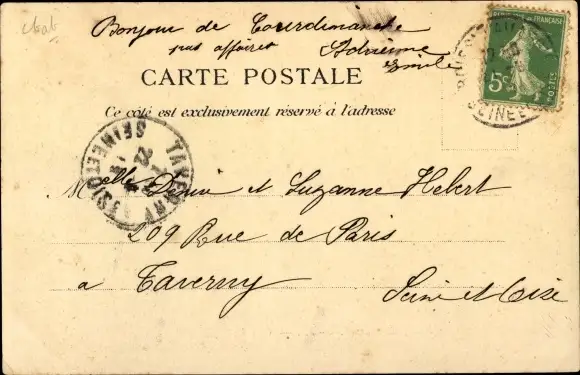 chat
Bonjour de Courdimanche
pas affaires Adrienne
Emile
CARTE POSTALE
Ce côté est exclusivement réservé à l'adresse
FRANÇAISE
5c
POSTES
TAVERNY
SEINE ET OISE
Melles Denise et Suzanne Hebert
209 Rue de Paris
a Taverny Seine et Oise